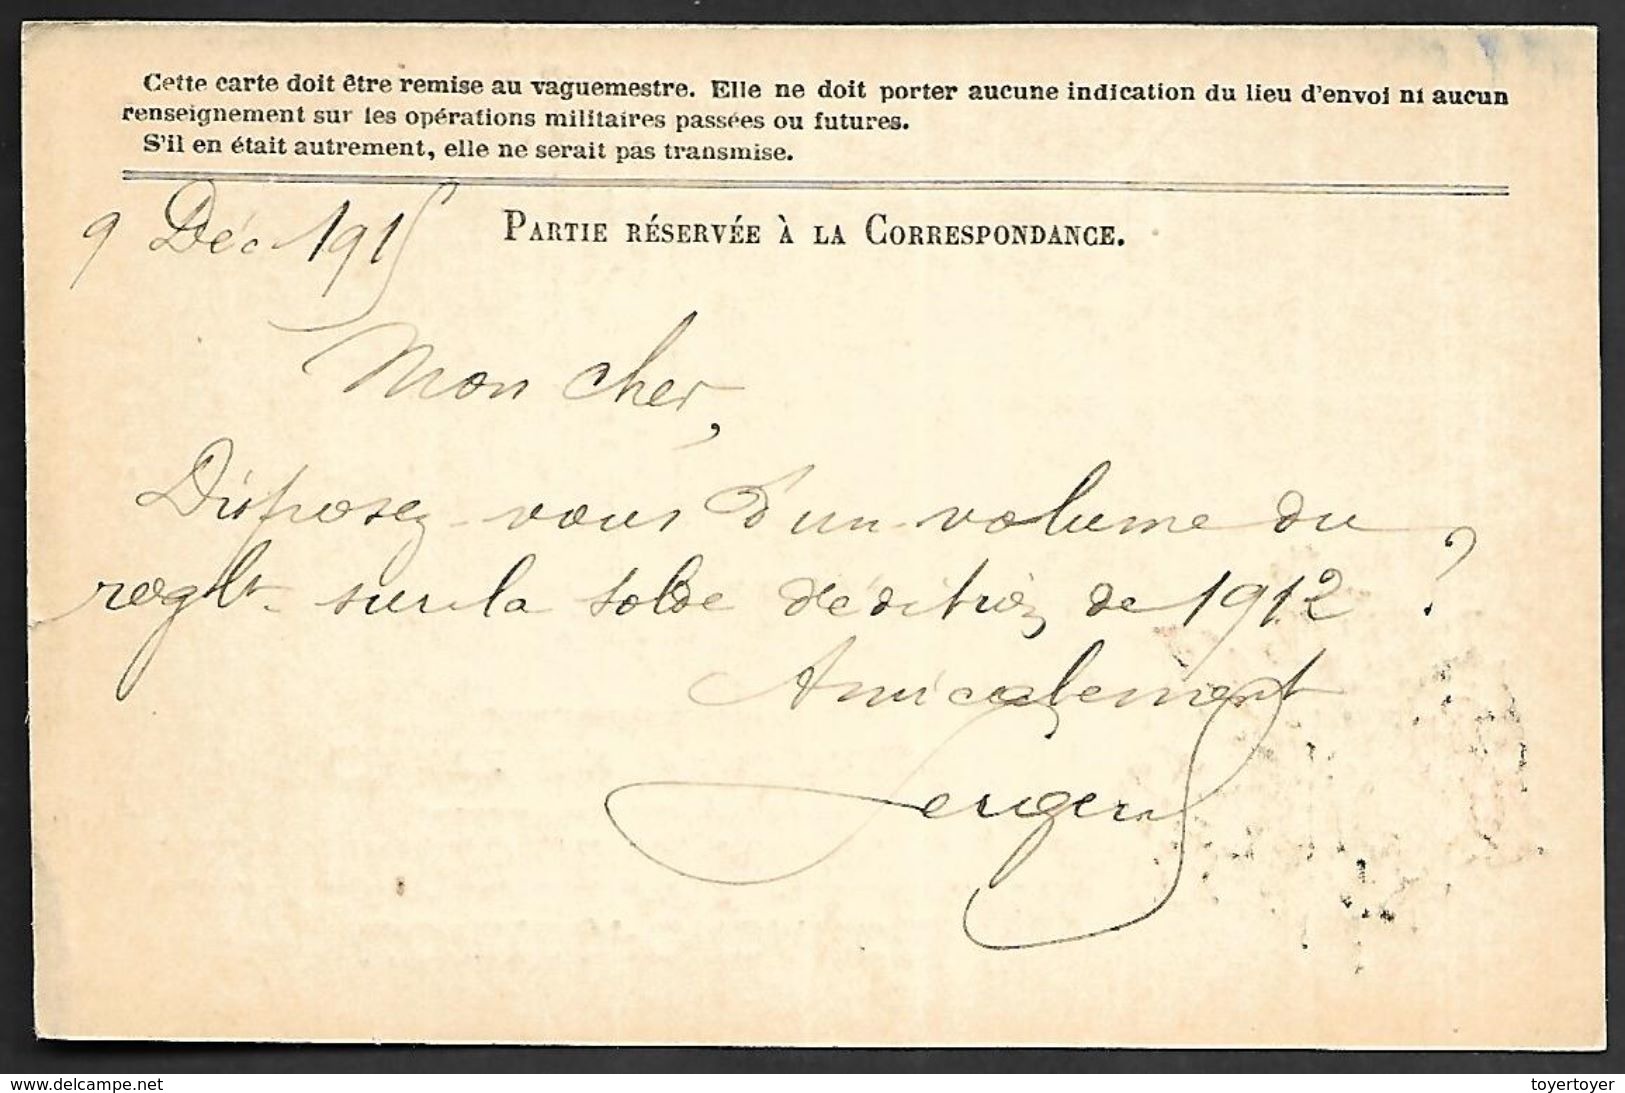 Cette carte doit être remise au vaguemestre. Elle ne doit porter aucune indication du lieu d'envoi ni aucun
renseignement sur les opérations militaires passées ou futures.
S'il en était autrement, elle ne serait pas transmise.
9 Déc 1915
PARTIE RÉSERVÉE À LA CORRESPONDANCE.
Mon cher,
Disposez-vous d'un volume du
reglt sur la solde d'édition de 1912 ?
Amicalement
delcampe.net
toyertoyer